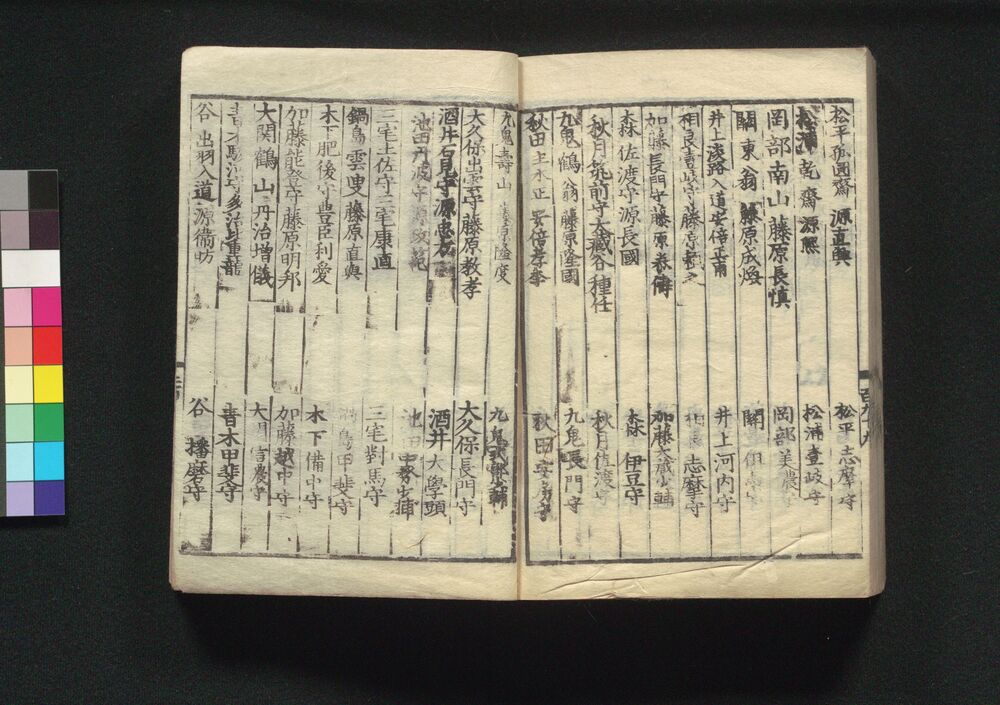 松平孤圓齋 源直興 松平 志摩守
松浦乾齋 源熈 松浦壹岐守
岡部南山 藤原長慎 岡部美濃守
關東翁 藤原成煥 關
井上淡路入道 安倍正甫 井上河内守
相良壹岐守 藤原 相良 志摩守
加藤長門守 藤原泰儔 加藤大蔵少輔
森 佐渡守 源長國 森 伊豆守
秋月筑前守 大藏谷種任 秋月佐渡守
九鬼鶴翁 藤原隆國 九鬼長門守
秋田主水正 安倍孝季 秋田安房守
九鬼壽山 藤原隆度 九鬼式部少輔
大久保出雲守 藤原教孝 大久保長門守
酒井石見守 源忠 酒井大學頭
池田丹波守 源政範 池田中務少輔
三宅土佐守 三宅康直 三宅對馬守
鍋島雲叟 藤原直與 鍋島甲斐守
木下肥後守 豊臣利愛 木下備中守
加藤能登守 藤原明邦 加藤越中守
大関鶴山 丹治増儀 大関信濃守
青木駿河守 多治比重龍 青木甲斐守
谷 出羽入道 源衛昉 谷 播磨守